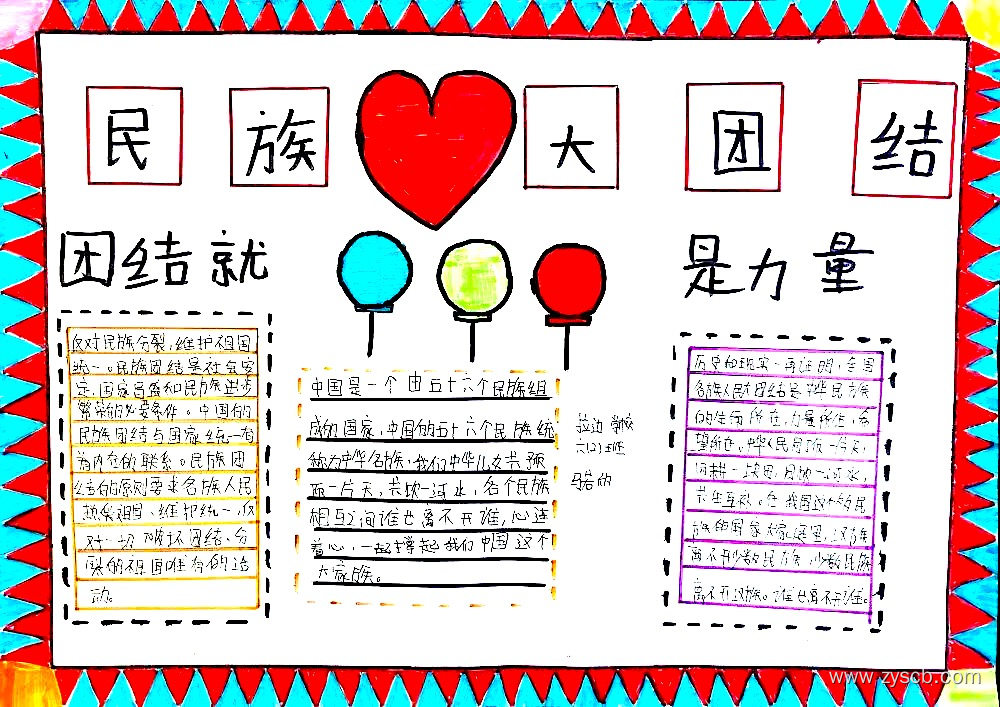 民族大团结
团结就
是力量
反对民族分裂,维护祖国
统一。民族团结是社会安
定、国家昌盛和民族进步
繁荣的必要条件。中国的
民族团结与国家统一有
着内在的联系。民族团
结的原则要求各族人民
热爱祖国,维护统一,反
对一切破坏团结、分
裂的祖国唯有的活
动。
中国是一个由五十六个民族组
成的国家,中国的五十六个民族统
称为中华名族,我们中华儿女共顶
一片天,共饮一河水,各个民族
相互间谁也离不开谁,心连
着心,一起撑起我们中国这个
大家族。
六(2)班
历史和现实,再证明,全国
各族人民大团结是中华民族
的生命所在,力量所在,希
望所在。中华人民同顶一片天,
同耕一块田,同饮一河水,
共生互救。在我国这个多民
族的国家大家庭里,汉族
离不开少数民族,少数民族
离不开汉族。谁也离不开谁。
www.zyscb.com